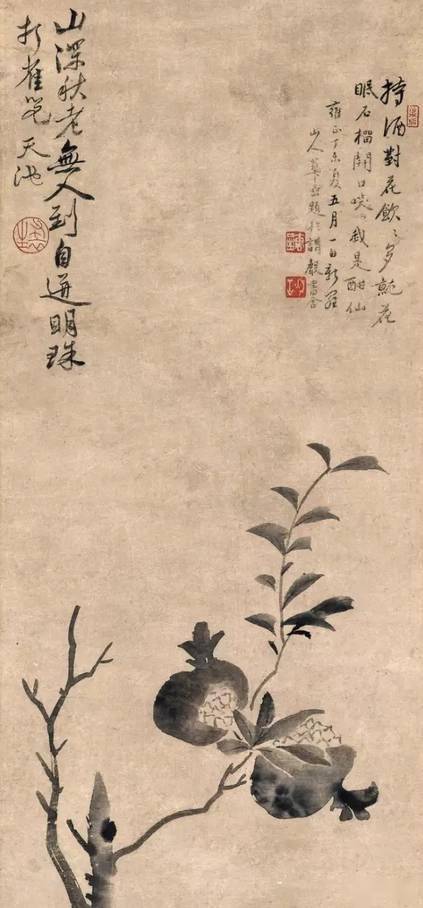 持酒對花飲〻多就花
眠石榴開口咲〻我是酣仙
雍正丁未夏五月一日新羅
山人華嵒題於書舍
山深秋老無人到自迸明珠
打雀兒 天池